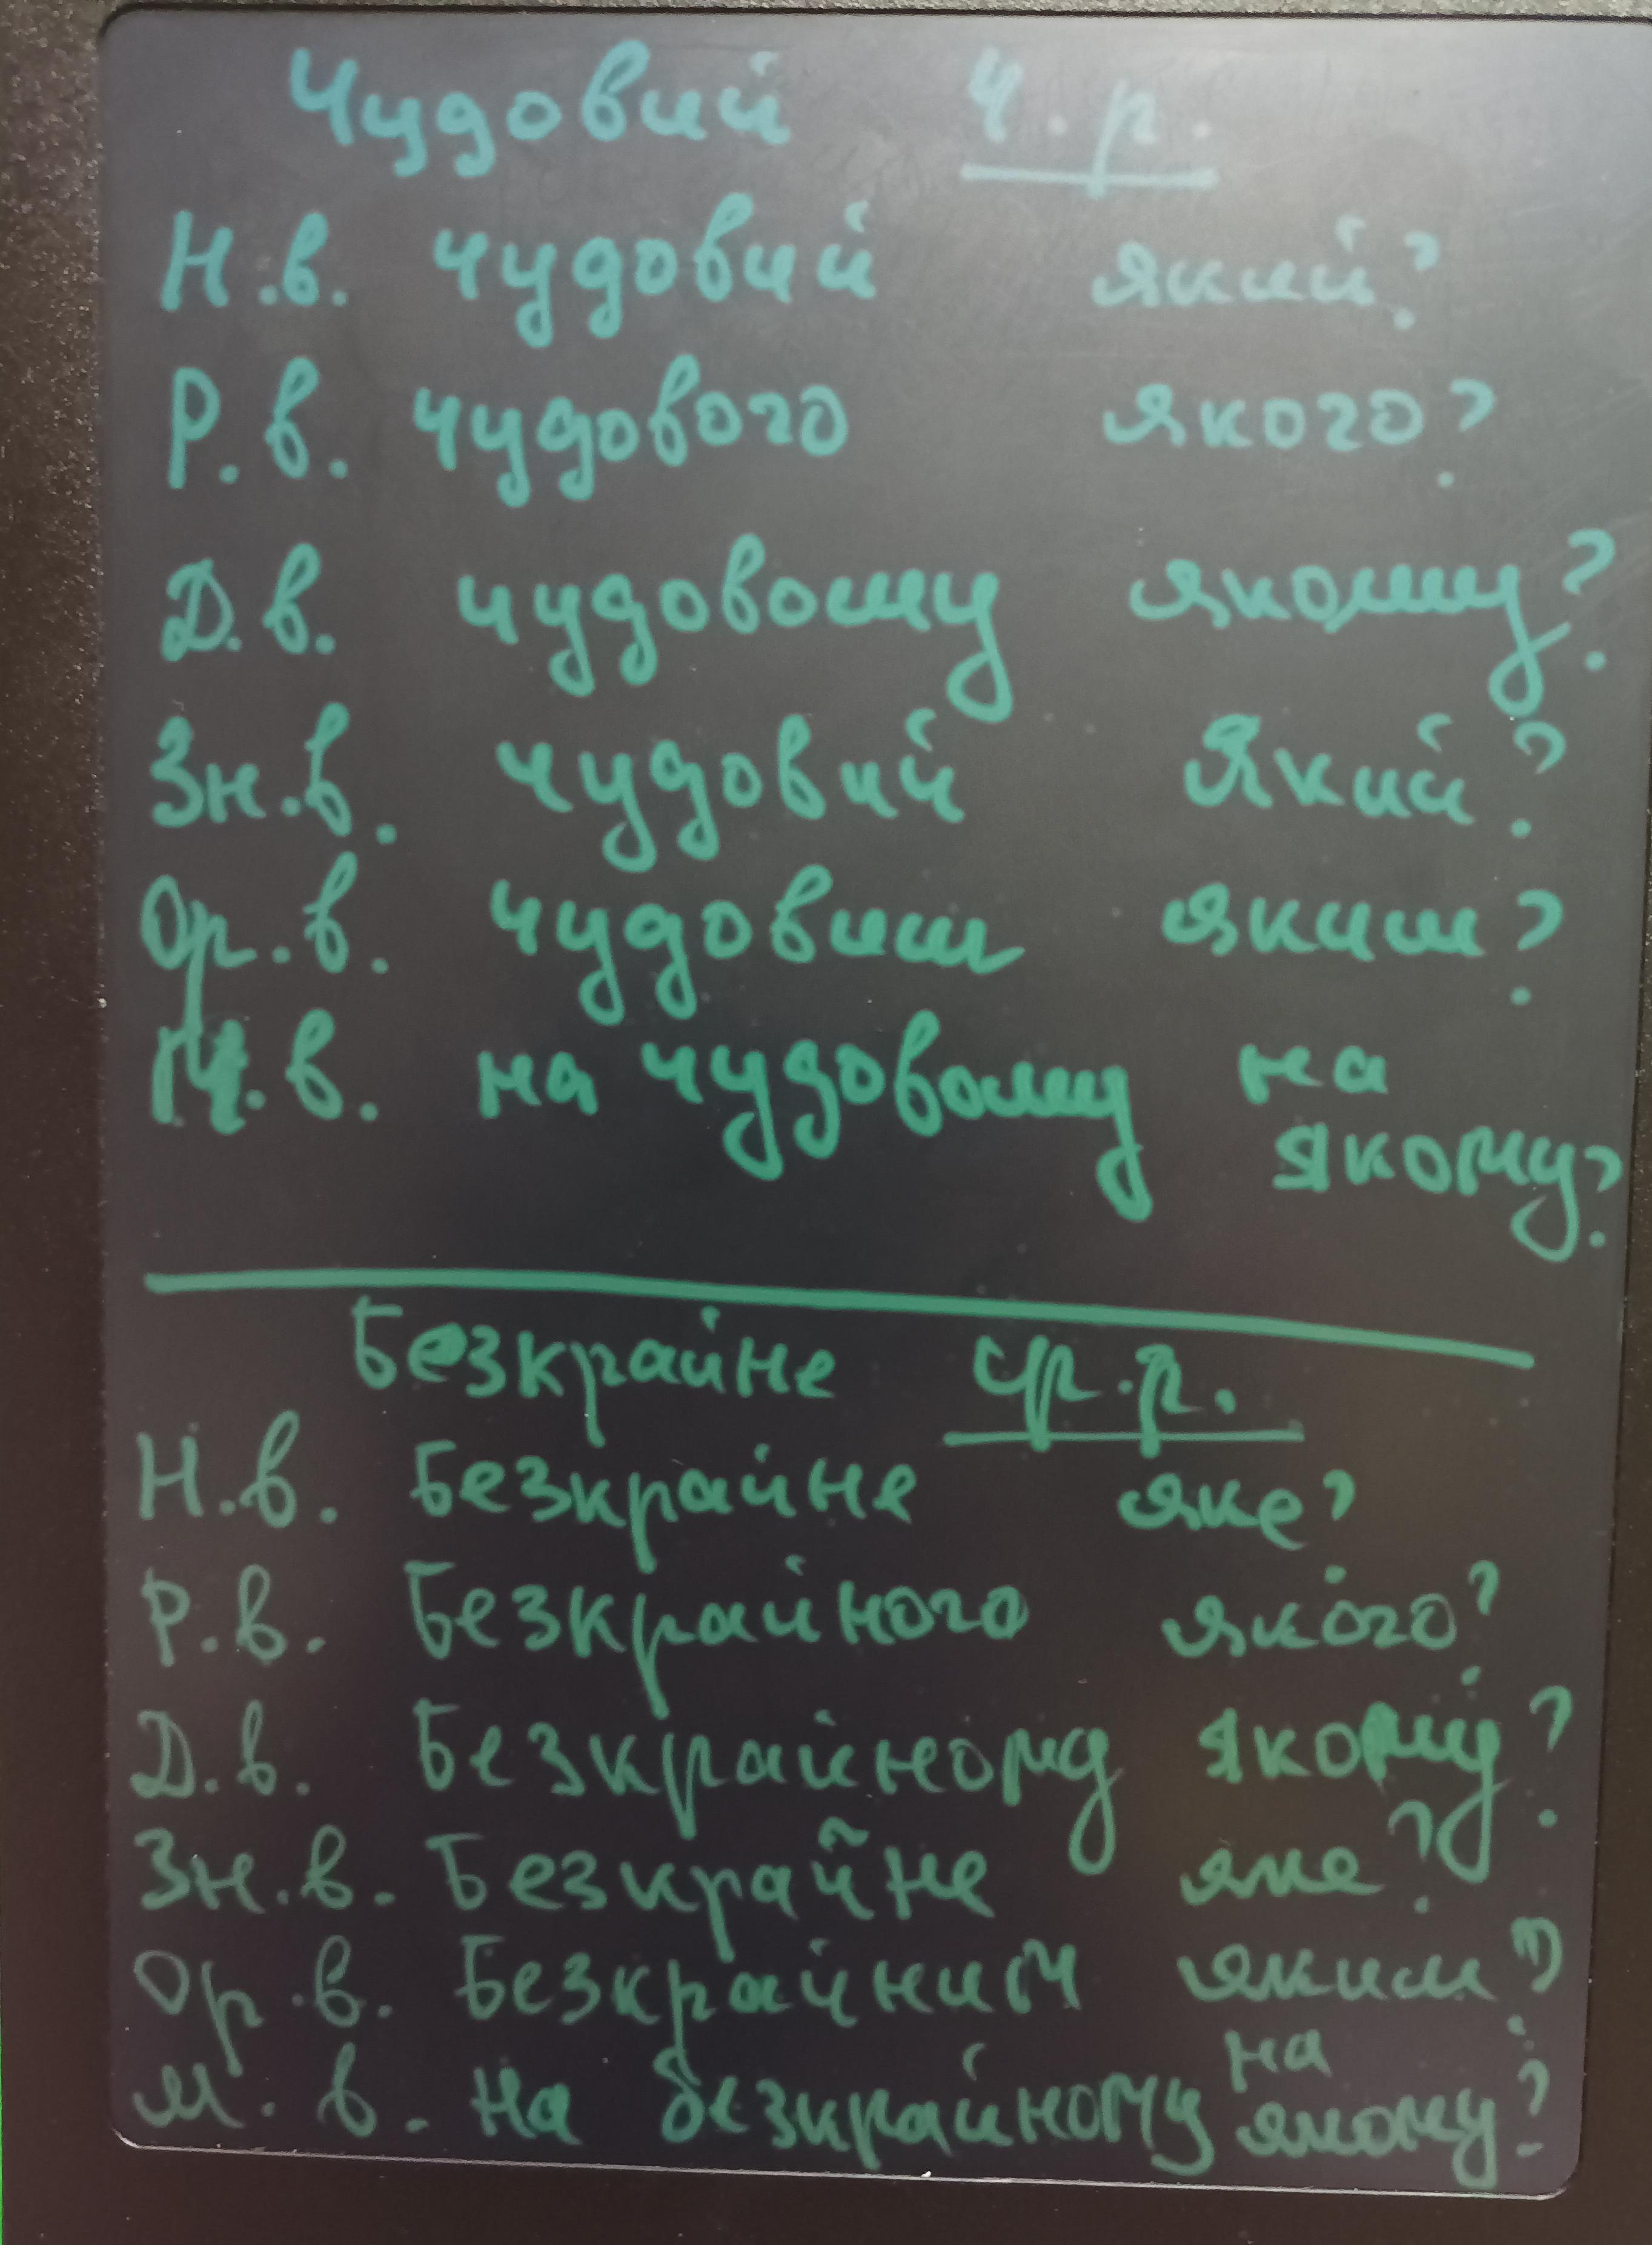 Чудовий ч.р.
Н.в. чудовий який?
Р.в. чудового якого?
Д.в. чудовому якому?
Зн.в. чудовий Який?
Ор.в. чудовим яким?
М.в. на чудовому на
якому?
Безкрайне ср.р.
Н.в. Безкрайне яке?
Р.в. Безкрайного якого?
Д.в. Безкрайному якому?
Зн.в. Безкрайне яке?
Ор.в. Безкрайним яким?
М.в. на безкрайному на якому?